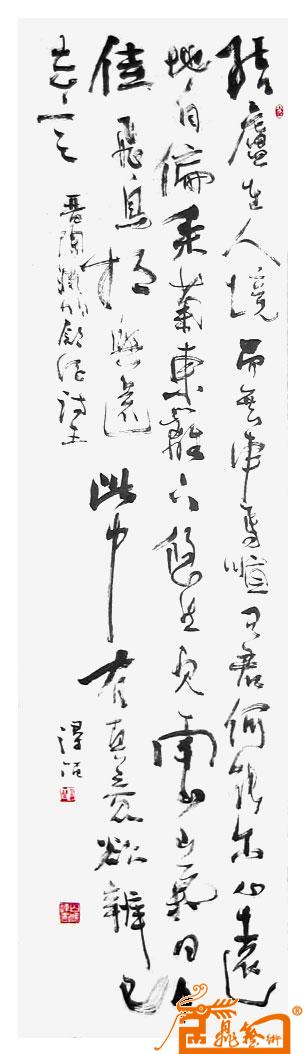 結廬在人境而無車馬喧問君何能尔心遠
地自偏采菊東籬下悠然見南山山氣日夕
佳飛鳥相與還此中有真意欲辨已
忘言
晋陶淵明飲酒詩五